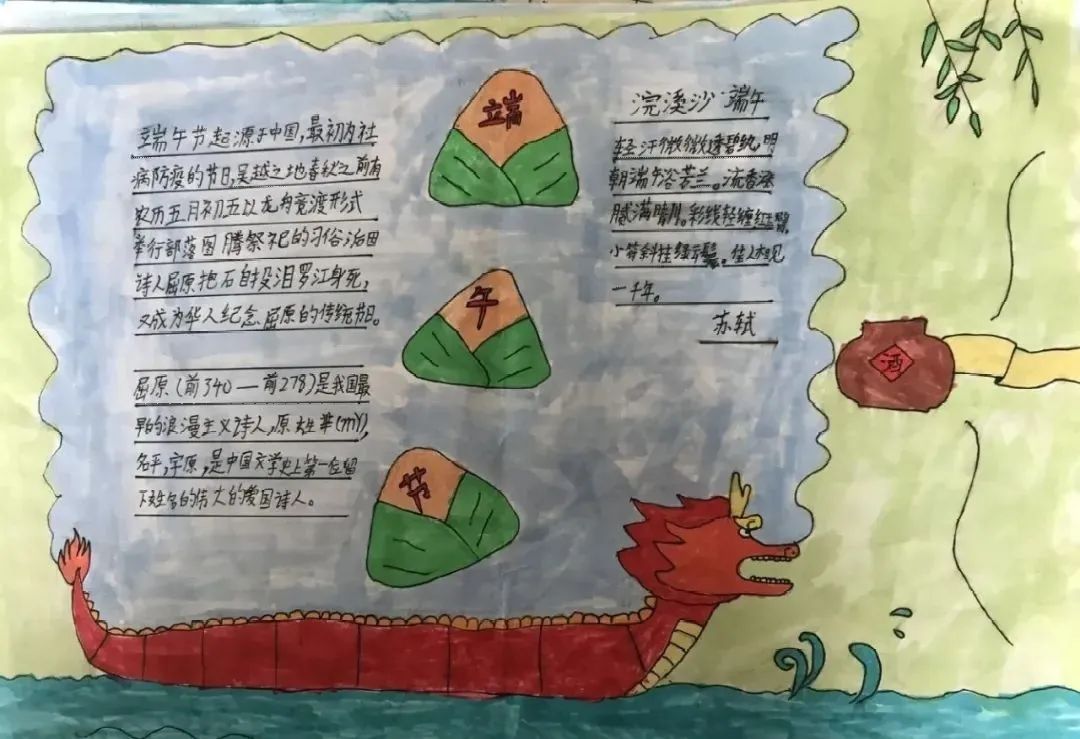 端午节起源于中国,最初为社
病防疫的节日,吴越之地春秋之前有
农历五月初五以龙舟竞渡形式
举行部落图腾祭祀的习俗
诗人屈原抱石自投汨罗江身死,
又成为华人纪念屈原的传统节日。
屈原(前340—前278)是我国最
早的浪漫主义诗人,原姓芈(mǐ),
名平,字原,是中国文学史上第一位留
下姓名的伟大的爱国诗人。
端
午
节
浣溪沙 端午
轻汗微微透碧纨,明
朝端午浴芳兰。流香涨
腻满晴川。彩线轻缠红臂,
小符斜挂绿云鬟。佳人相见
一千年。
苏轼
酒